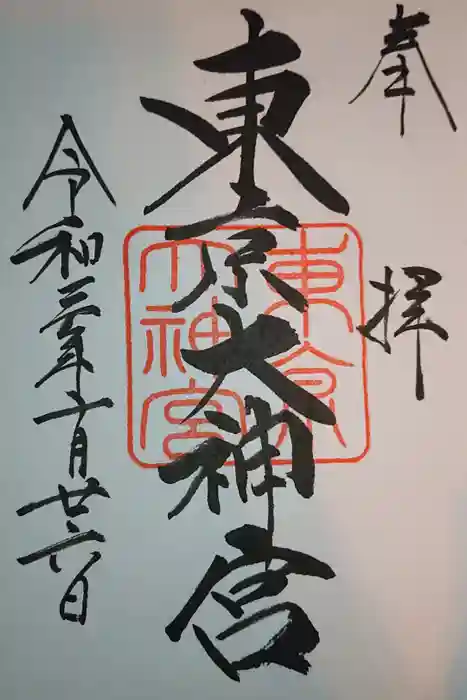 奉拝
東京大神宮
東京
大神宮
令和三年十月廿六日